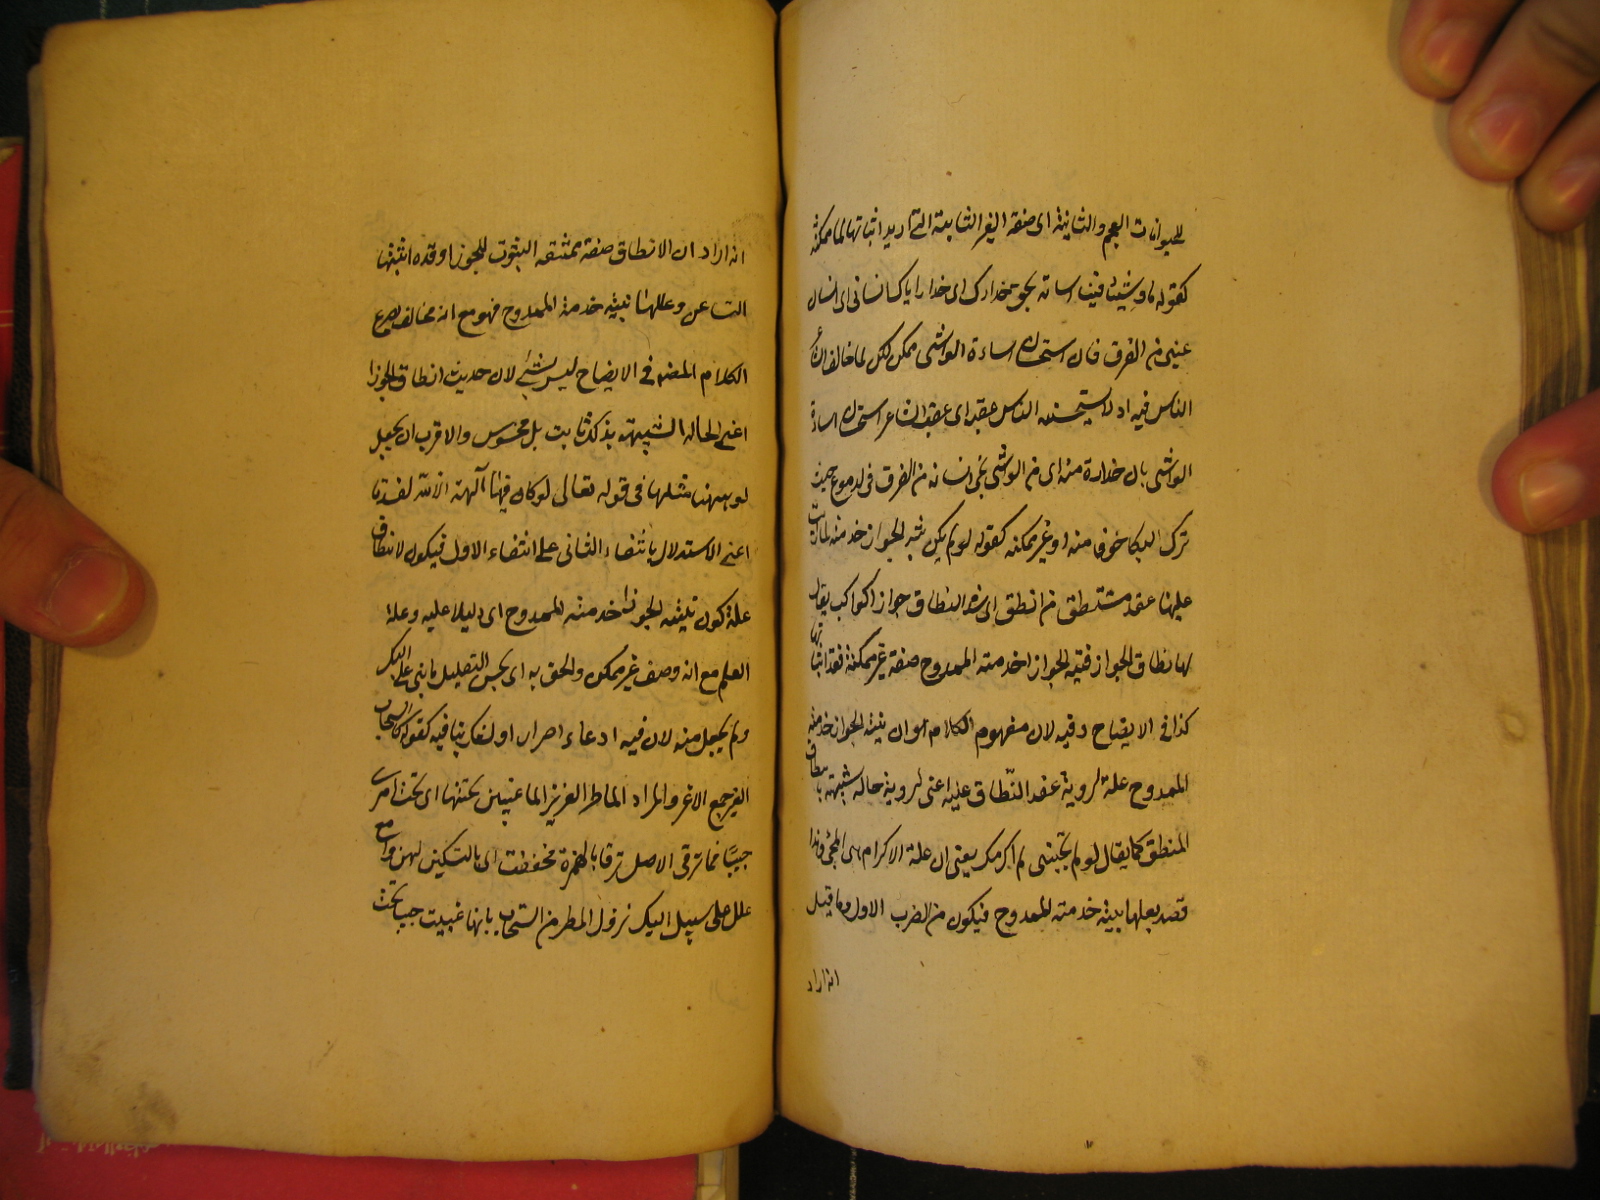 للحيوانات العجم والثانية اى صفة الغير الثابتة التى اريد اثباتها اما ممكنة
كقوله يا واشيا حسنت فينا اساءته نجى حذارك اى حذارى اياك انسانى اى انسان
عينى من الغرق فان استحسان اساءة الواشى ممكن لكن لما خالف
الناس فيه اذ لا يستحسنه الناس عقبه اى عقب الشاعر استحسان اساءة
الواشى بان حذاره منه اى من الواشى نجى انسانه من الغرق فى الدموع حيث
ترك البكا خوفا منه او غير ممكنه كقوله لو لم يكن نية الجوزا خدمته لما رايت
عليها عقد منتطق من انتطق اى شد النطاق وحول الجوزا كواكب يقال
لها نطاق الجوزا فنية الجوزا خدمته الممدوح صفة غير ممكنة قصد اثباتها
كذا فى الايضاح وفيه لان مفهوم الكلام هو ان نية الجوزا خدمته
الممدوح علة لروية عقد النطاق عليه اعنى لروية حاله شبيهة بانتطاق
المنطق كما يقال لو لم تجئنى لم اكرمك يعنى ان علة الاكرام هى المجئ وهذا
قصد بعلها بنية خدمته الممدوح فيكون من الضرب الاول وما قيل
انه اراد
انه اراد ان الانتطاق صفة ممتنعة الثبوت للجوزا وقد اثبتها
الشاعر وعللها بنية خدمة الممدوح فهو مع انه مخالف لصريح
الكلام المصنف فى الايضاح ليس بشئ لان حديث انتطاق الجوزا
اعنى الحالة الشبيهة بذلك ثابت بل محسوس والاقرب ان يجعل
لو ههنا مثلها فى قوله تعالى لو كان فيهما آلهة الا الله لفسدتا
اعنى الاستدلال بانتفاء الثانى على انتفاء الاول فيكون الانتطاق
علة كون نية الجوزا خدمته الممدوح اى دليلا عليه وعلة
العلم مع انه وصف غير ممكن والحق به اى بحسن التعليل ما بنى على الشك
ولم يجعل منه لان فيه ادعاء واصرار او الشك ينافيه كقوله كان السحاب
الغر جمع الاغر والمراد الماطر الغزير الماء غيبن تحتها اى تحت
حبيبا فما ترقى الاصل ترقا بالهمزة فخففت اى ما تسكن لهن مدامع
علل على سبيل الشك نزول المطر من السحاب بانها غيبت حبيبا تحت